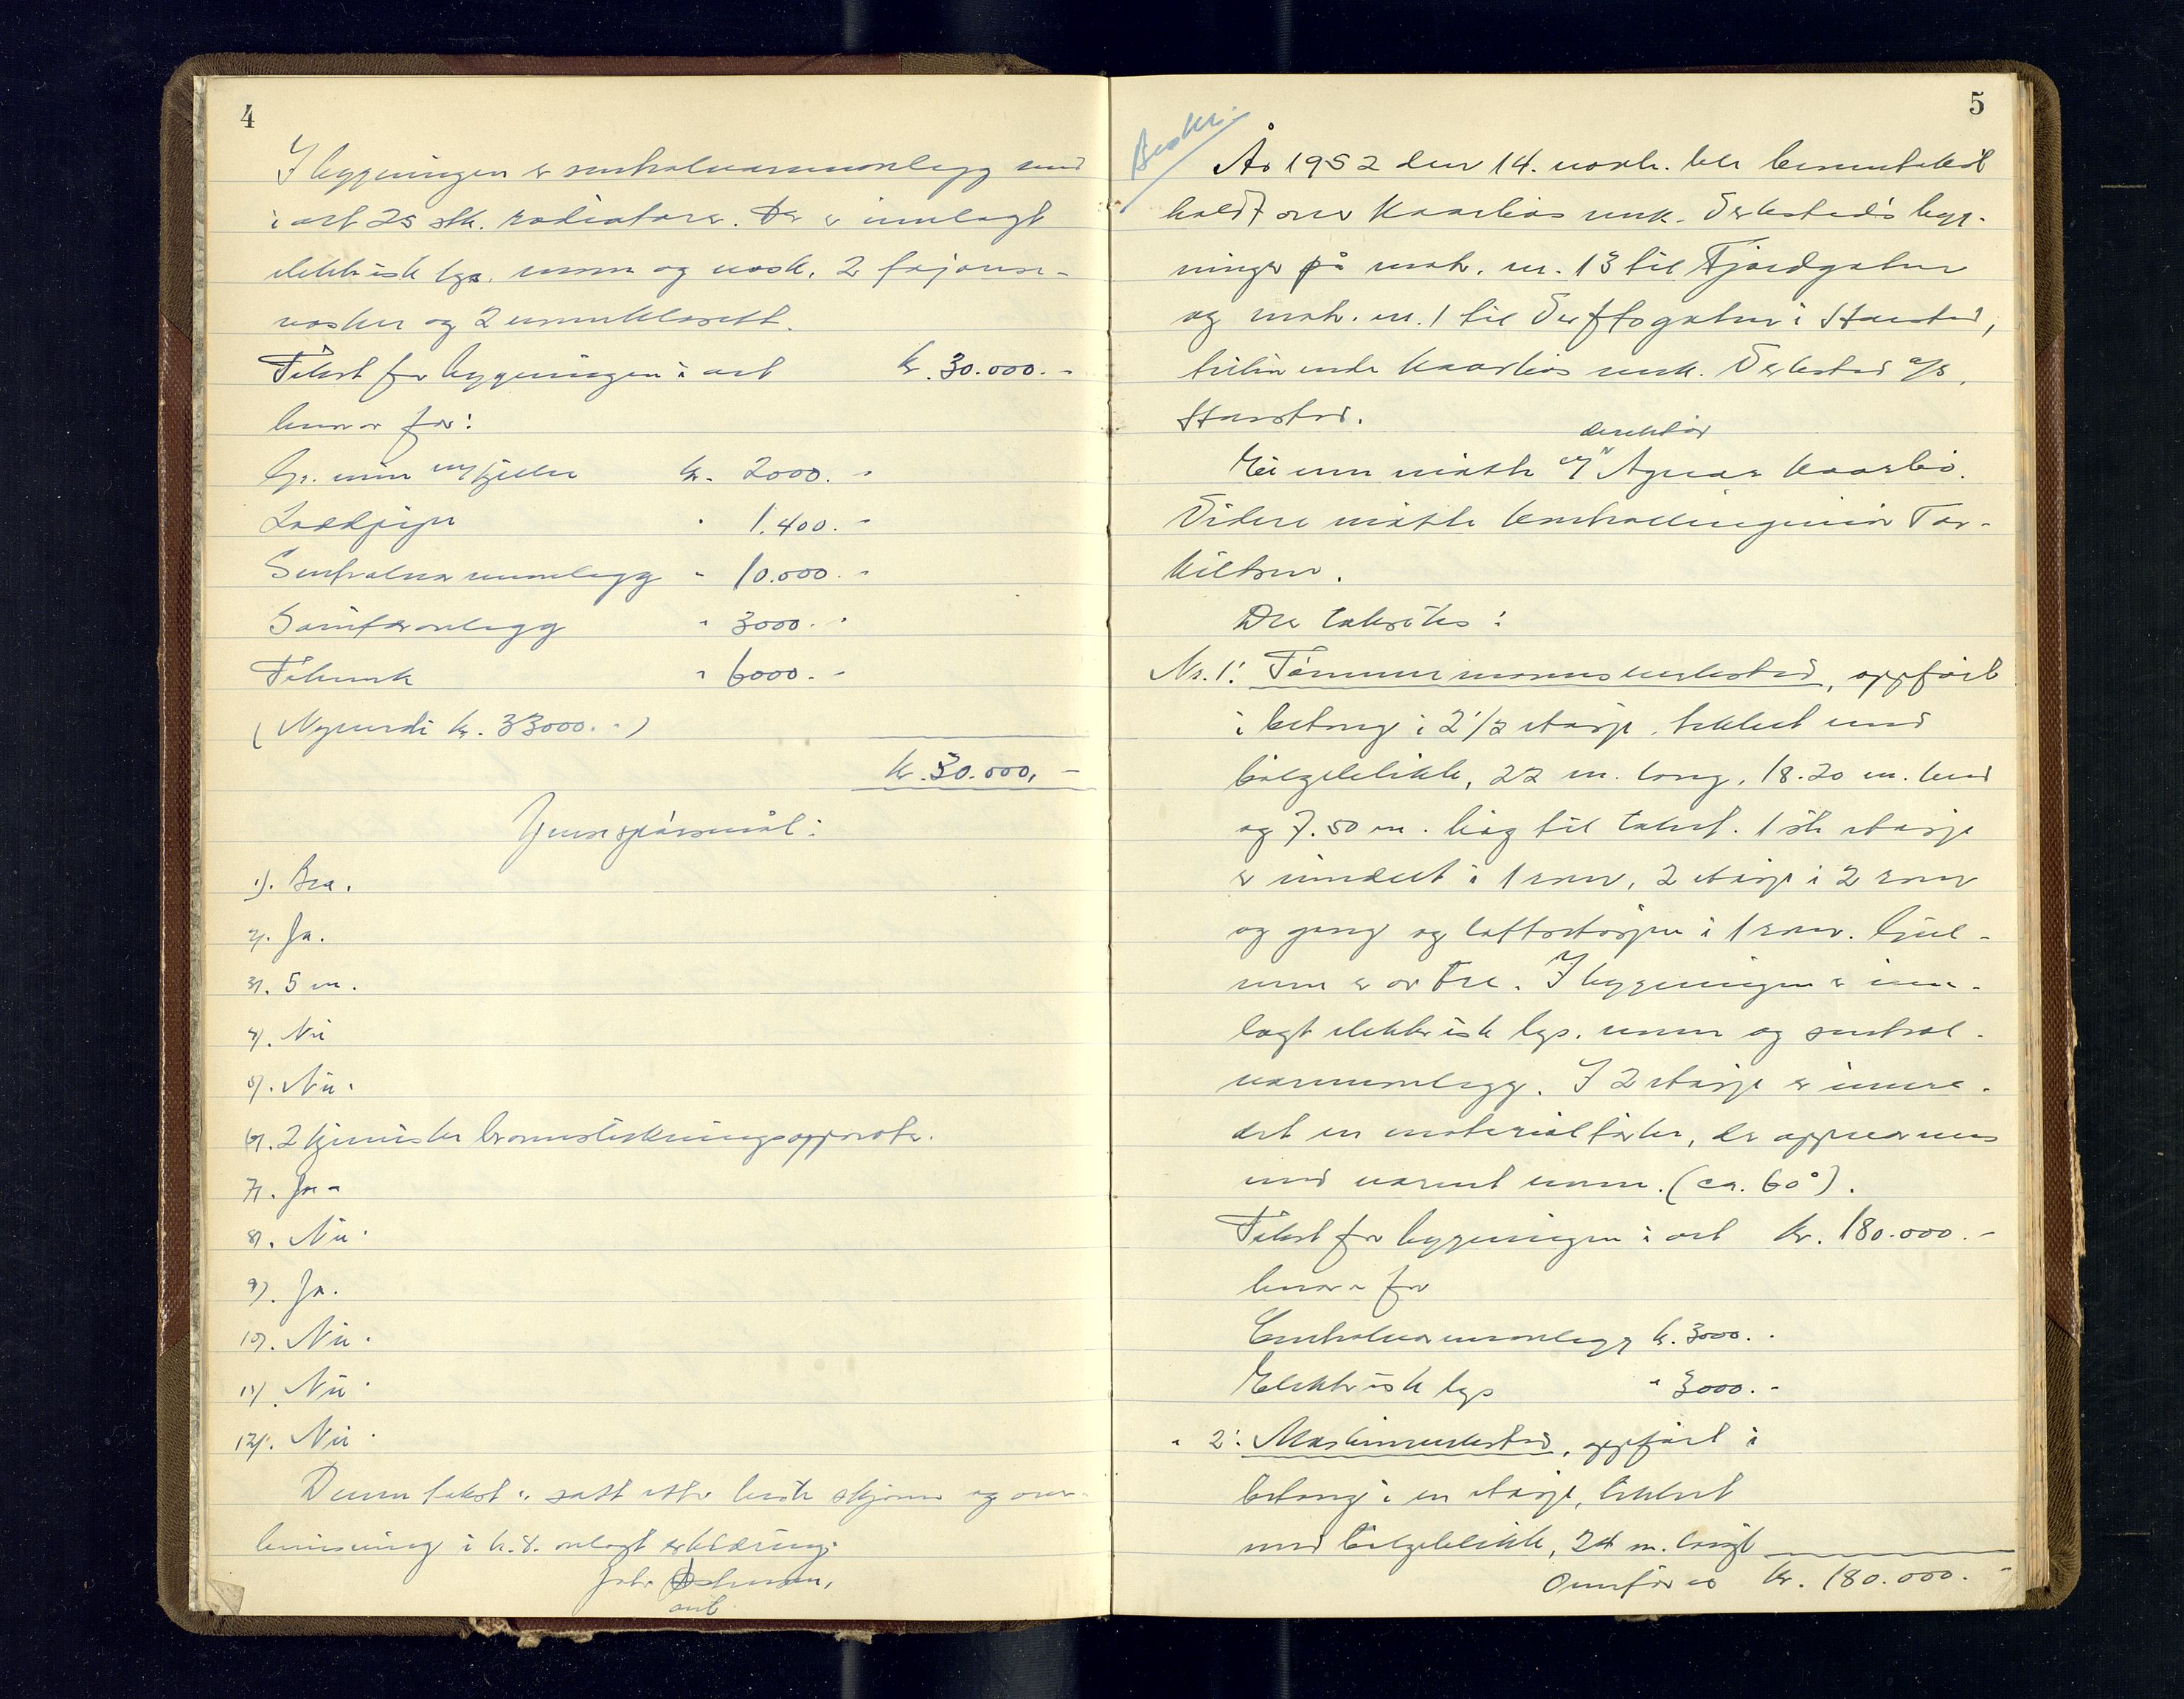 4
I bygningen er sentralvarmeanlegg med
i alt 25 stk. radiatorer. Der er innlagt
elektrisk lys, vann og vask, 2 fajanse-
vasker og 2 vannklosett.
Takst for bygningen i alt kr. 30.000.-
hvorav for:
Gr. mur m/kjeller kr. 2000.-
Loddpipe " 1.400.-
Sentralvarmeanlegg " 10.000.-
Sanitæranlegg " 3000.-
Takverk " 6000.-
(Nyverdi kr. 33000.-)
kr. 30.000,-
spørsmål:
1). Bra.
2). Ja.
3). 5 m.
4). Nei
5). Nei.
6). 2 kjemiske brannslukningsapparater.
7). Ja-
8). Nei.
9). Ja.
10). Nei.
11). Nei.
12). Nei.
Denne takst er satt etter beste skjønn og over-
bevisning i h.t. avlagt erklæring.
Johansen,
5
År 1952 den 14. novbr. ble branntakst
holdt over Kaarbøs mek. Verksteds byg-
ninger på matr. nr. 13 til Fjordgaten
og matr. nr. 1 til Verftsgaten i Harstad,
tilhørende Kaarbøs mek. Verksted a/s,
Harstad.
direktør
Eieren møtte v/ Agnar Kaarbø.
Videre møtte kontrollingeniør Tor-
kildsen.
Der takseres:
Nr. 1: Tømmermannsverksted, oppført
i betong i 2 1/2 etasje, tekket med
bølgeblikk, 22 m. lang, 18.20 m. bred
og 7.50 m. høg til takst. 1ste etasje
er inndelt i 1 rom, 2 etasje i 2 rom
og gang og loftsetasjen i 1 rom. Bjel-
kene er av tre. I bygningen er inn-
lagt elektrisk lys, vann og sentral-
varmeanlegg. I 2 etasje er innre-
det en materialtørke, der oppvarmes
med varmt vann. (ca. 60°).
Takst for bygningen i alt kr. 180.000.-
hvorav for
Centralvarmeanlegg kr. 3000.-
Elektrisk lys " 3000.-
" 2: Maskinverksted, oppført i
betong i en etasje, tekket
med bølgeblikk, 24 m. langt
Overføres kr. 180.000.-